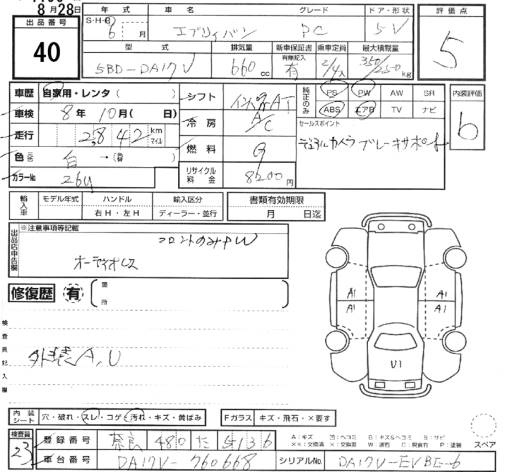 8月28日
出品番号
40
年式 車名 グレード ドア・形状
S・H・R
年 月
エブリイバン PC 5V
型式 排気量 新車保証書 乗車定員 最大積載量
5BD-DA17V 660cc 有 2/4人 350/250kg
評価点
5
車歴 自家用・レンタ( )
車検 8年10月( )
走行 2842km マイル
色 白 →(替 )
カラーNo. 26U
シフト インパネAT
冷房 A/C
燃料 G
リサイクル料金 8200円
純正のみ
PS PW AW SR
ABS エアB TV ナビ
セールスポイント
デュアルカメラブレーキサポート
内装評価
6
輸入車 モデル年式 ハンドル 輸入区分
年 右H・左H ディーラー・並行
書類有効期限
月 日迄
出品店申告欄
※注意事項等記載
フロントのみPW
オーディオレス
修復歴 有 箇所
検査員記入欄
外装A,U
A1 A1
A1 A1
U1
内装シート 穴・破れ・スレ・コゲ・汚れ・キズ・黄ばみ
Fガラス キズ・飛石・×要す
スペア
検査員
23
登録番号 奈良 480 た 5136
車台番号 DA17V-760668
シリアルNo. DA17V-EVBE-6